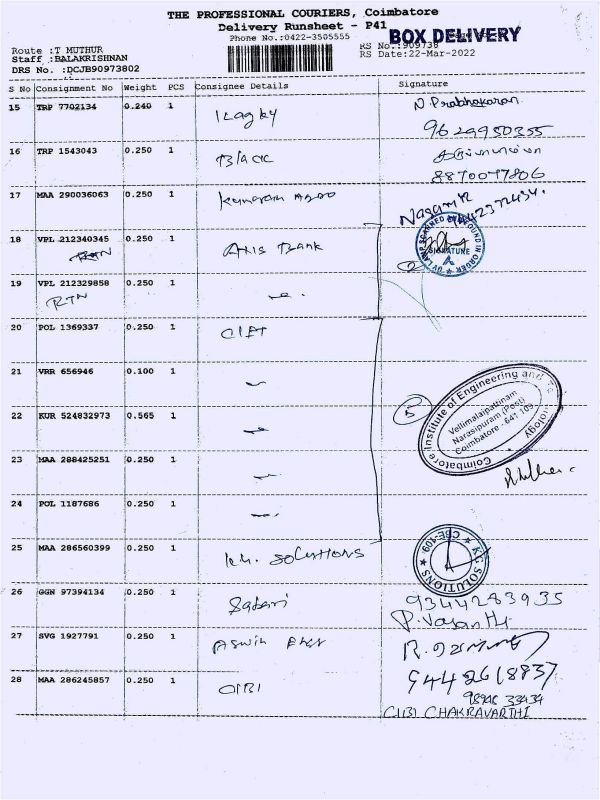 THE PROFESSIONAL COURIERS, Coimbatore
Delivery Runsheet - P41
Phone No.:0422-3505555
BOX DELIVERY
Route :T MUTHUR
Staff :BALAKRISHNAN
DRS No. :DCJB90973802
RS No.:909738
RS Date:22-Mar-2022
S No Consignment No Weight PCS Consignee Details Signature
15 TRP 7702134 0.240 1 N. Prabhakaran
9629950355
16 TRP 1543043 0.250 1 Black
8870047806
17 MAA 290036063 0.250 1
18 VPL 212340345 0.250 1 Axis Bank
RTN
UV LAMP SCANNED & FOUND IN ORDER
SIGNATURE
19 VPL 212329858 0.250 1
RTN
20 POL 1369337 0.250 1 CIET
21 VRR 656946 0.100 1
22 KUR 524832973 0.565 1 5
Coimbatore Institute of Engineering and Technology
Vellimalaipattinam
Narasipuram (Post)
Coimbatore - 641 109
23 MAA 288425251 0.250 1
24 POL 1187686 0.250 1
25 MAA 286560399 0.250 1 K.G. Solutions
K.G. SOLUTIONS CBE-109
26 GGN 97394134 0.250 1 Safari
9344283935
P. Vasanthi
27 SVG 1927791 0.250 1
28 MAA 286245857 0.250 1 CIBI
9442618837
98946 33434
CIBI CHAKRAVARTHI